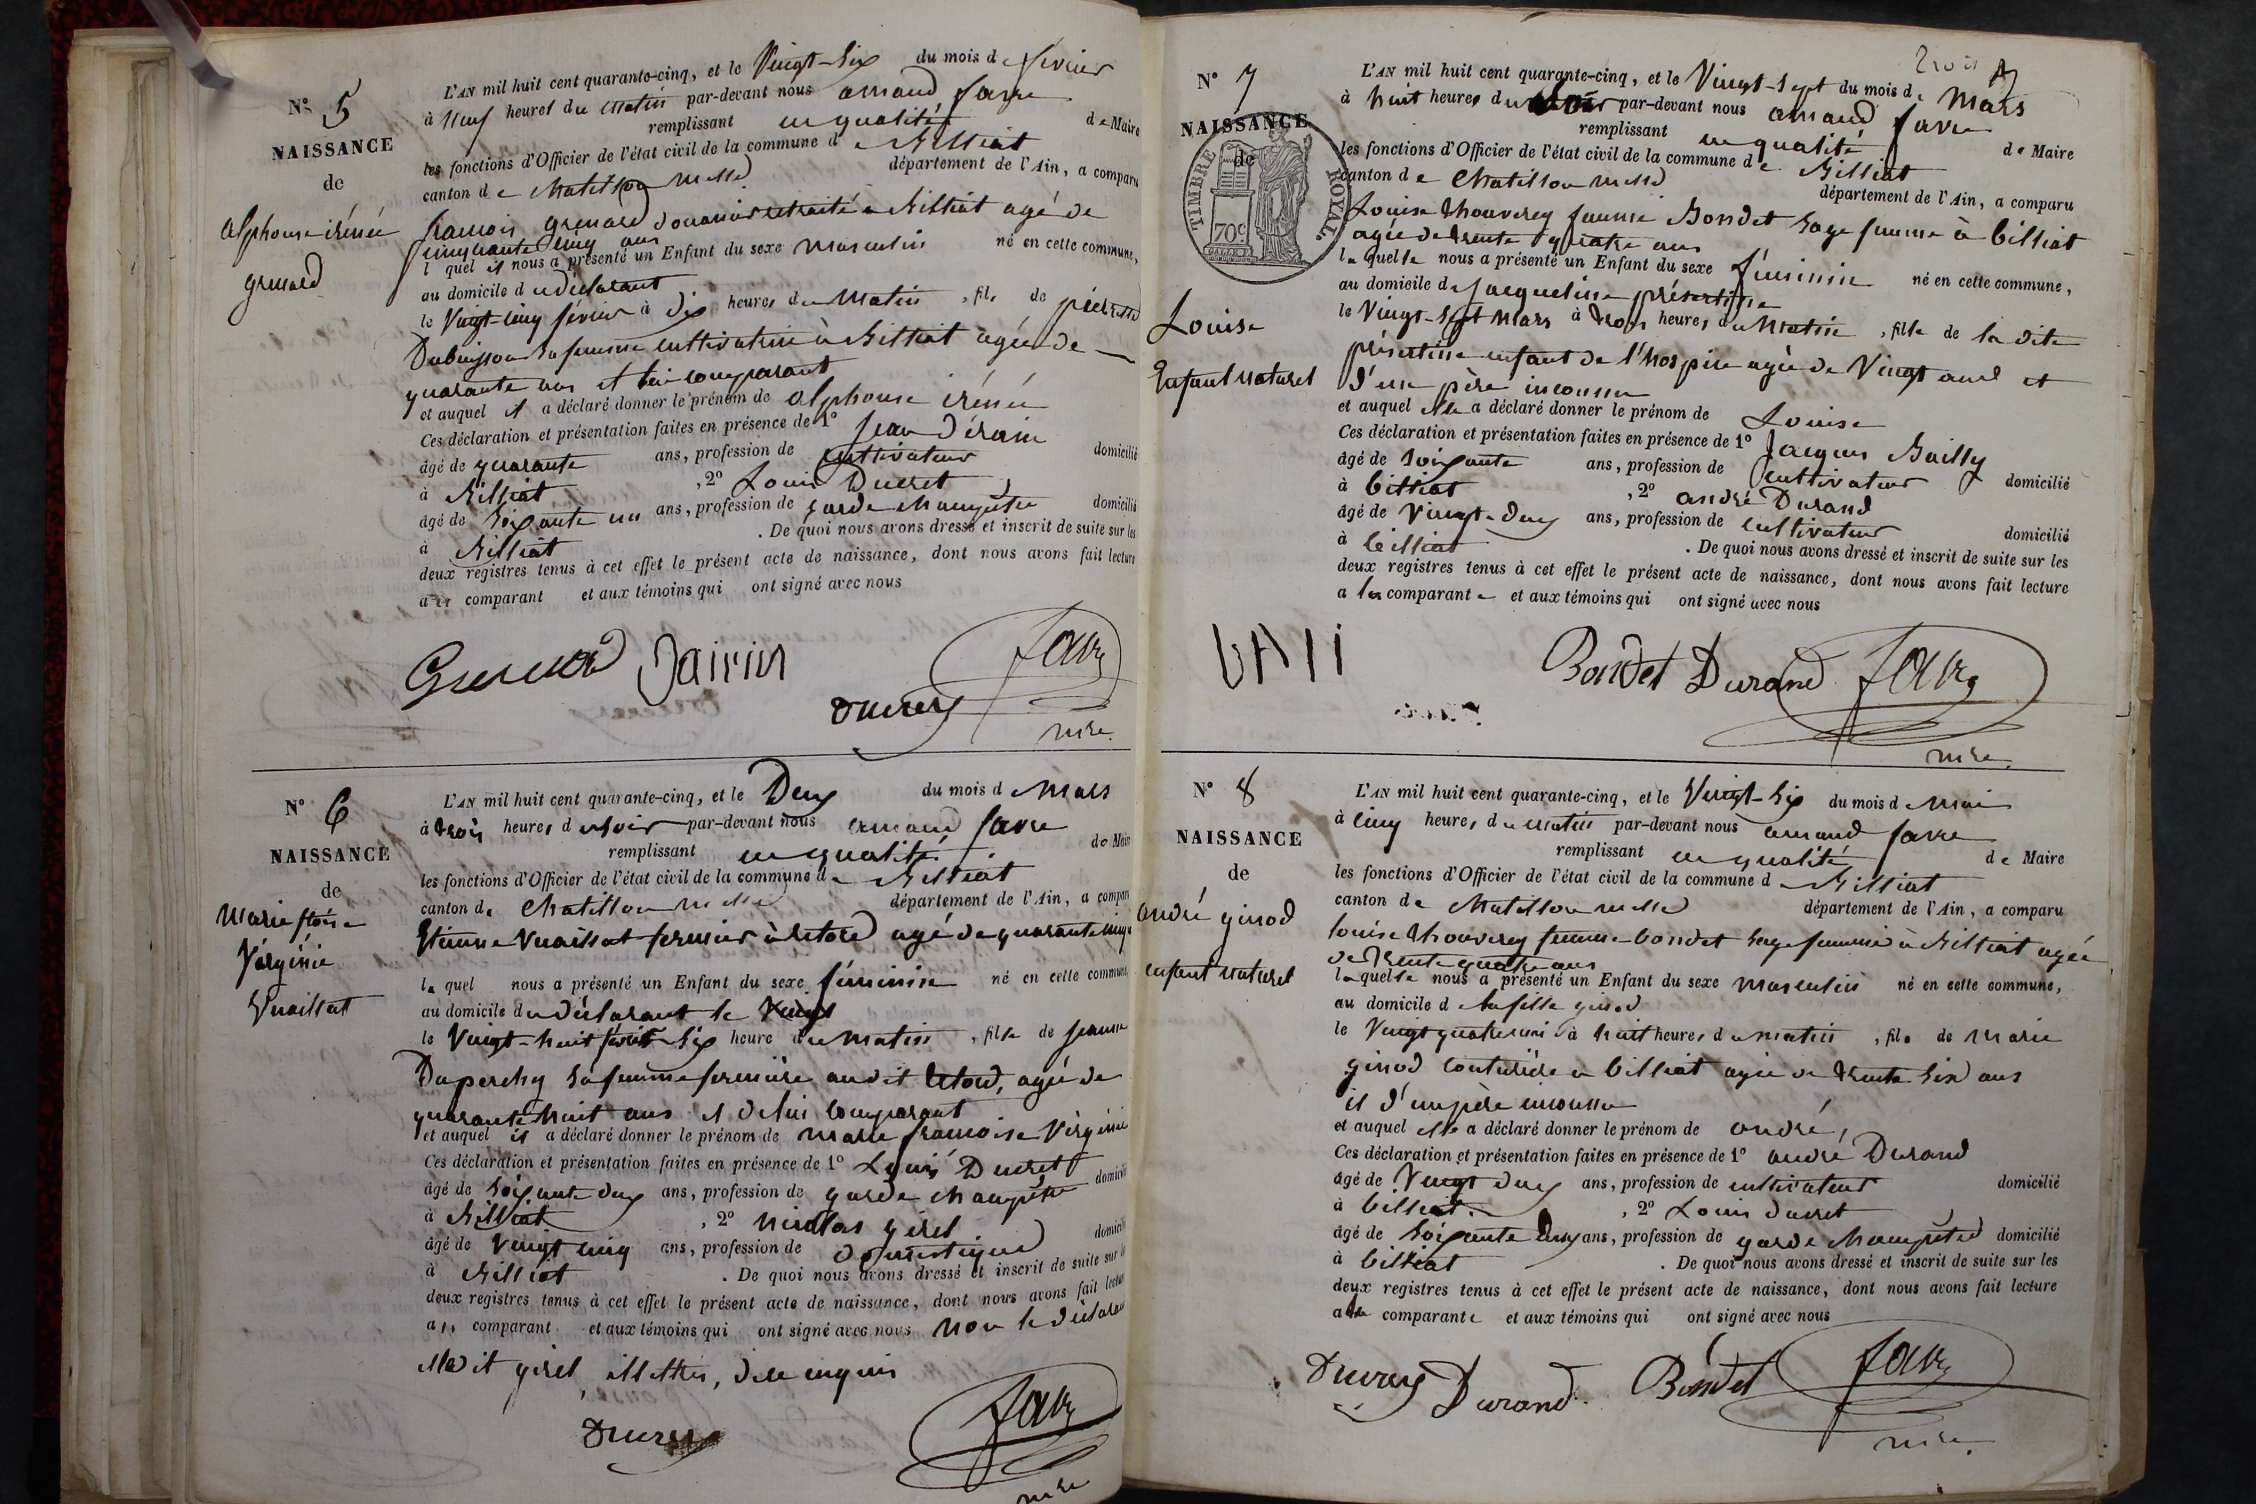 N° 5
NAISSANCE
de
alphonse irénée
grenard
L'AN mil huit cent quarante-cinq, et le Vingt-Six du mois de février
à neuf heures du matin par-devant nous amand favre
remplissant en qualité de Maire
les fonctions d'Officier de l'état civil de la commune de Billiat
canton de Chatillon département de l'Ain, a comparu
françois grenard douanier retraité à Billiat agé de
cinquante cinq ans
lequel il nous a présenté un Enfant du sexe masculin né en cette commune,
au domicile du déclarant
le Vingt-cinq février à dix heures du matin, fils de pierrette
Dubuisson sa femme cultivatrice à Billiat agée de
quarante ans et lui comparant
et auquel il a déclaré donner le prénom de alphonse irénée
Ces déclaration et présentation faites en présence de 1° jean
âgé de quarante ans, profession de cultivateur domicilié
à Billiat, 2° Louis Ducret
âgé de soixante un ans, profession de garde champêtre domicilié
à Billiat. De quoi nous avons dressé et inscrit de suite sur les
deux registres tenus à cet effet le présent acte de naissance, dont nous avons fait lecture
au comparant et aux témoins qui ont signé avec nous
Grenard Jairin favre
Ducret
mre
N° 6
NAISSANCE
de
Marie fsoise
Virginie
Vuaillat
L'AN mil huit cent quarante-cinq, et le Deux du mois de Mars
à trois heures du soir par-devant nous amand favre
remplissant en qualité de Maire
les fonctions d'Officier de l'état civil de la commune de Billiat
canton de Chatillon département de l'Ain, a comparu
Etienne Vuaillat fermier à retord agé de quarante cinq
lequel nous a présenté un Enfant du sexe féminin né en cette commune,
au domicile du déclarant le vingt
le Vingt-huit février Six heure du matin, fille de jeanne
Duperchy sa femme fermière audit retord, agée de
quarante huit ans et de lui comparant
et auquel il a déclaré donner le prénom de marie françoise Virginie
Ces déclaration et présentation faites en présence de 1° Louis Ducret
âgé de soixante deux ans, profession de garde champêtre domicilié
à Billiat, 2° nicolas girel
âgé de Vingt cinq ans, profession de domestique domicilié
à Billiat. De quoi nous avons dressé et inscrit de suite sur les
deux registres tenus à cet effet le présent acte de naissance, dont nous avons fait lecture
au comparant et aux témoins qui ont signé avec nous non le déclarant
et ledit girel, illettrés, de ce enquis
Ducret favre
mre
N° 7
NAISSANCE
de
TIMBRE ROYAL
70c
Louise
Enfant naturel
L'AN mil huit cent quarante-cinq, et le Vingt-Sept du mois de Mars
à huit heures du par-devant nous amand favre
remplissant en qualité de Maire
les fonctions d'Officier de l'état civil de la commune de Billiat
canton de Chatillon département de l'Ain, a comparu
Louise thouverey femme Bondet sage femme à billiat
agée de trente quatre ans
laquelle nous a présenté un Enfant du sexe féminin né en cette commune,
au domicile de jacqueline présentine
le Vingt-Sept Mars à trois heures du matin, fille de la dite
présentine enfant de l'hospice agée de Vingt ans et
d'un père inconnu
et auquel elle a déclaré donner le prénom de Louise
Ces déclaration et présentation faites en présence de 1° Jacques Bailly
âgé de soixante ans, profession de cultivateur domicilié
à billiat, 2° andré Durand
âgé de Vingt-deux ans, profession de cultivateur domicilié
à billiat. De quoi nous avons dressé et inscrit de suite sur les
deux registres tenus à cet effet le présent acte de naissance, dont nous avons fait lecture
a la comparante et aux témoins qui ont signé avec nous
Bondet Durand favre
mre
N° 8
NAISSANCE
de
andré ginod
enfant naturel
L'AN mil huit cent quarante-cinq, et le Vingt-Six du mois de Mai
à cinq heures du matin par-devant nous amand favre
remplissant en qualité de Maire
les fonctions d'Officier de l'état civil de la commune de Billiat
canton de Chatillon département de l'Ain, a comparu
louise thouverey femme bondet sage femme à Billiat agée
de trente quatre ans
laquelle nous a présenté un Enfant du sexe masculin né en cette commune,
au domicile de la fille ginod
le Vingt quatre mai à huit heures du matin, fils de Marie
ginod couturière à billiat agée de trente six ans
et d'un père inconnu
et auquel elle a déclaré donner le prénom de andré,
Ces déclaration et présentation faites en présence de 1° andré Durand
âgé de Vingt deux ans, profession de cultivateur domicilié
à billiat, 2° Louis ducret
âgé de soixante deux ans, profession de garde champêtre domicilié
à billiat. De quoi nous avons dressé et inscrit de suite sur les
deux registres tenus à cet effet le présent acte de naissance, dont nous avons fait lecture
a la comparante et aux témoins qui ont signé avec nous
Ducret Durand Bondet favre
mre